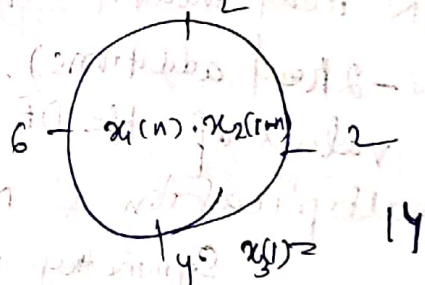 2
6 x₁(n) · x₂(1+n) 2
4 x₃(1)= 14